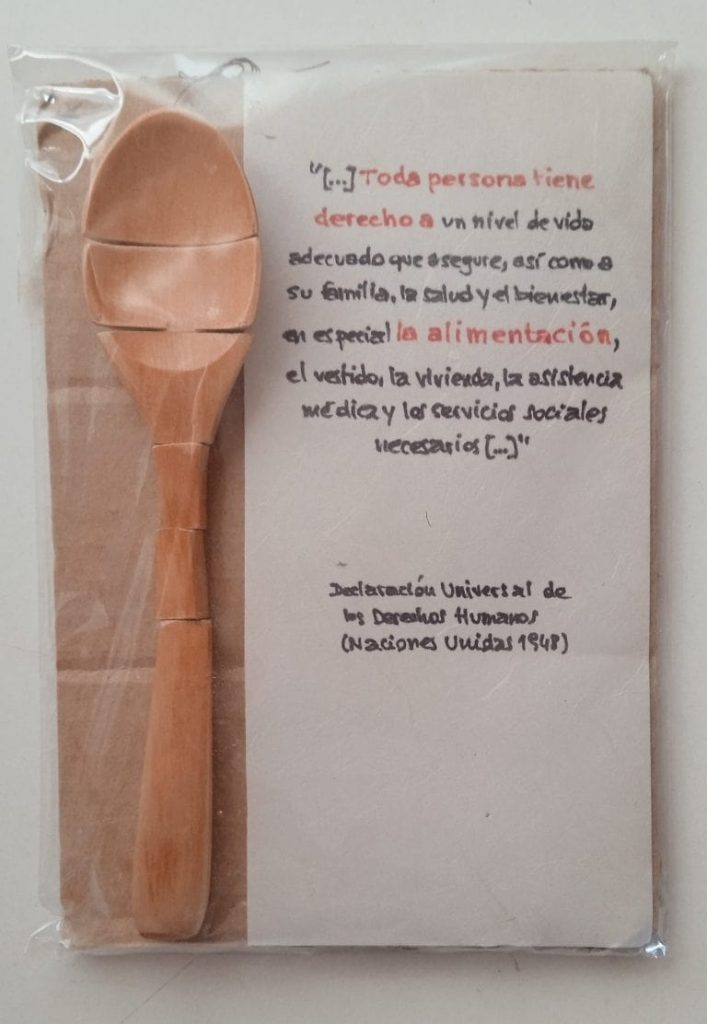 "[...] Toda persona tiene
derecho a un nivel de vida
adecuado que asegure, así como a
su familia, la salud y el bienestar,
en especial la alimentación,
el vestido, la vivienda, la asistencia
médica y los servicios sociales
necesarios [...]"
Declaración Universal de
los Derechos Humanos
(Naciones Unidas 1948)